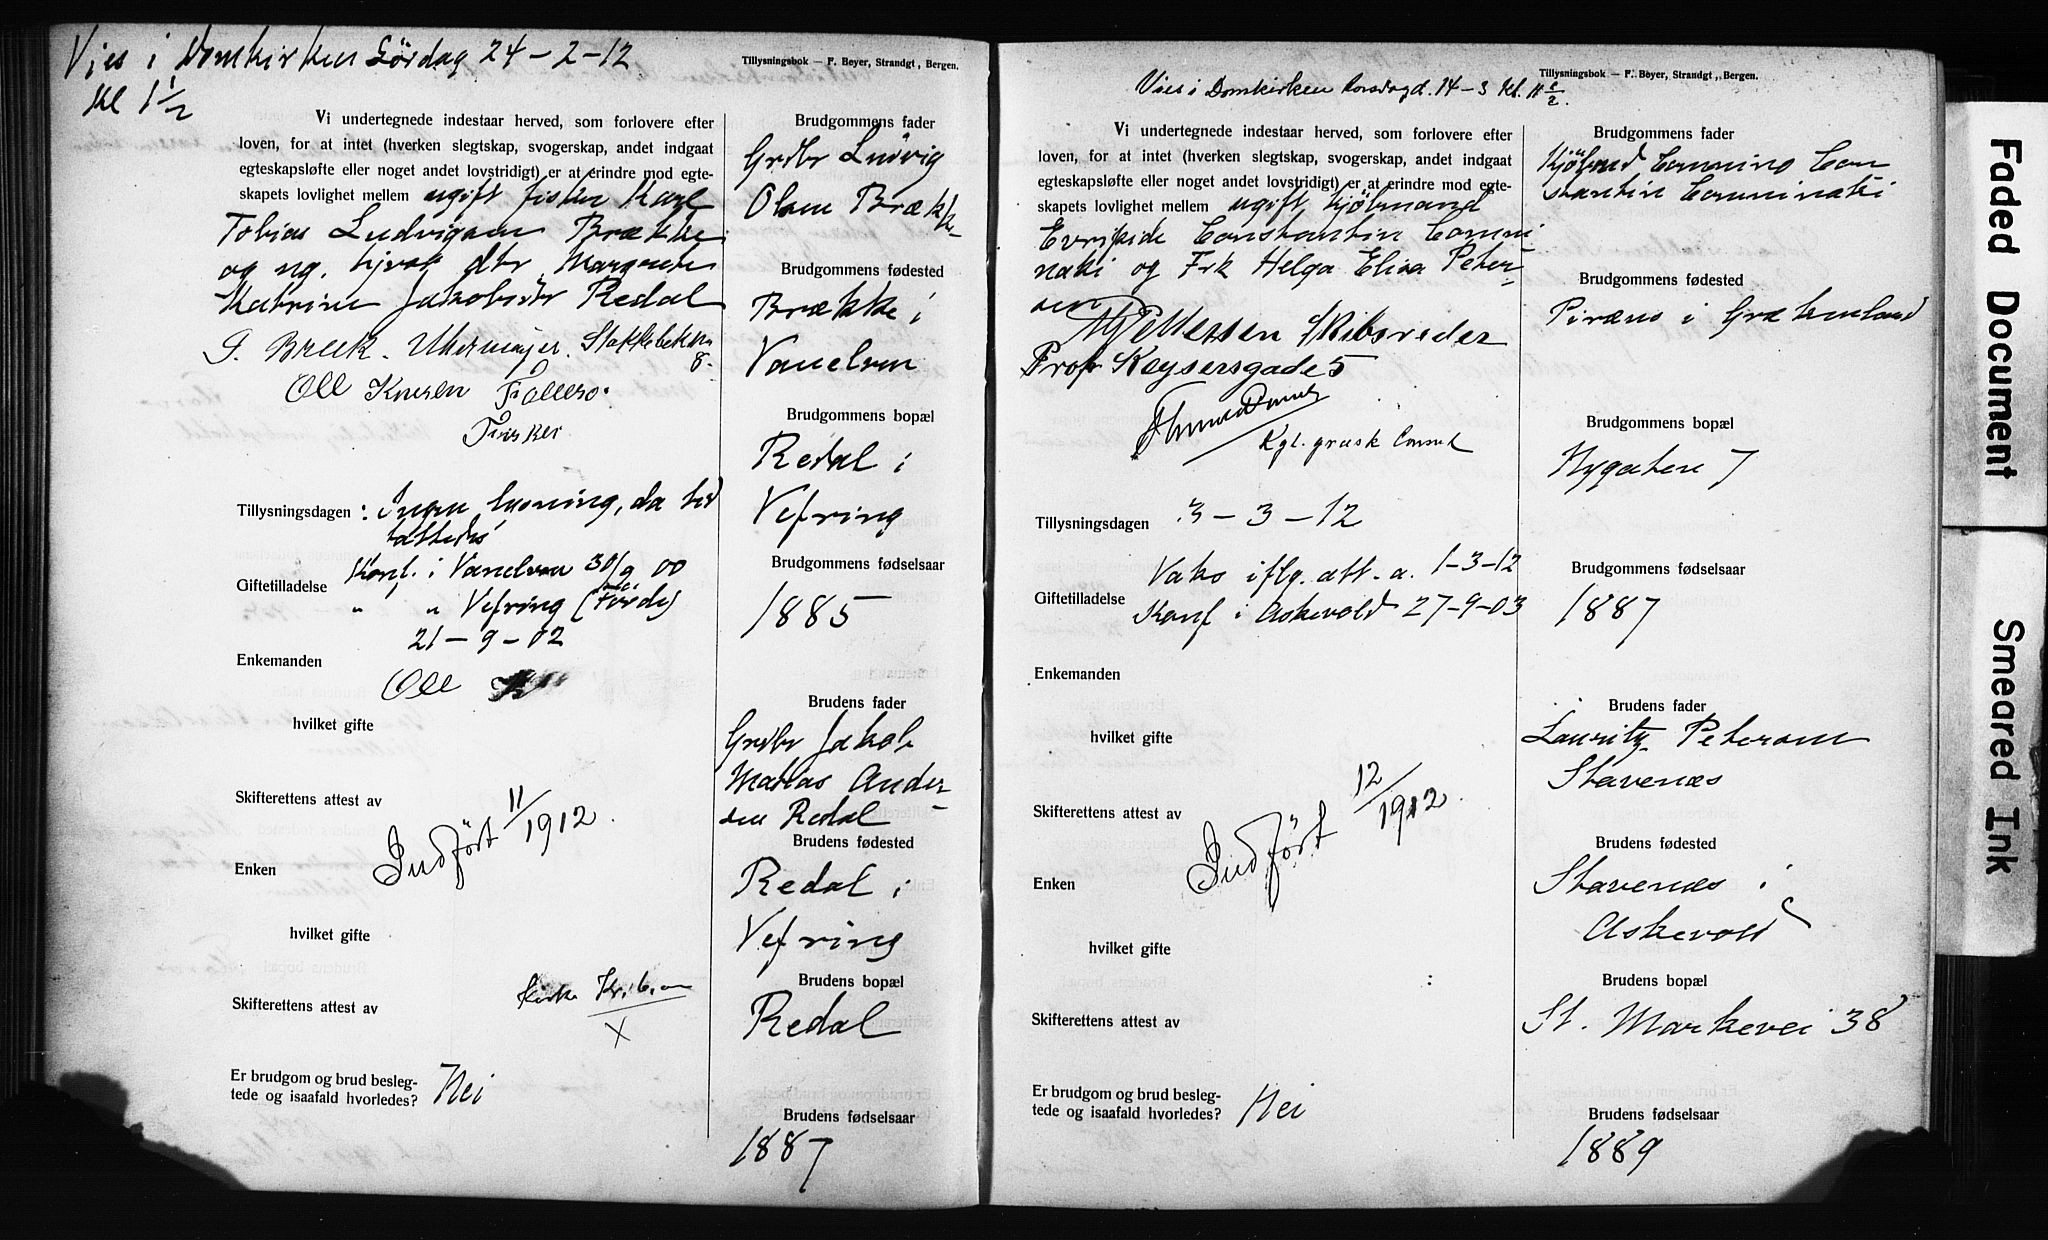 Vies i Domkirken Lördag 24-2-12
Kl 1 1/2
Tillysningsbok — F. Beyer, Strandgt., Bergen.
Vi undertegnede indestaar herved, som forlovere efter
loven, for at intet (hverken slegtskap, svogerskap, andet indgaat
egteskapsløfte eller noget andet lovstridigt) er at erindre mod egte-
skapets lovlighet mellem ugift fisker Karl
Tobias Ludvigsen Brække
og ug. tjpok dtr Margrete
Katrine Jakobsdtr Redal
Ole Knusen
Fisker
Tillysningsdagen : Ingen lysning, da
Konf. i Vanelven 30/9 00
Giftetilladelse " " Vefring (Förde)
21-9-02
Enkemanden
Ole
hvilket gifte
Skifterettens attest av
Indført 11/1912.
Enken
hvilket gifte
Skifterettens attest av
X
Er brudgom og brud besleg-
tede og isaafald hvorledes? Nei
Brudgommens fader
Grdbr Ludvig
Olsen Brække
Brudgommens fødested
Brække i
Vanelven
Brudgommens bopæl
Redal i
Vefring
Brudgommens fødselsaar
1885
Brudens fader
Grdbr Jakob
Matias Ander-
sen Redal
Brudens fødested
Redal i
Vefring
Brudens bopæl
Redal
Brudens fødselsaar
1887
Tillysningsbok — F. Beyer, Strandgt., Bergen.
Vies i Domkirken Torsdag d. 14-3 Kl.
Vi undertegnede indestaar herved, som forlovere efter
loven, for at intet (hverken slegtskap, svogerskap, andet indgaat
egteskapsløfte eller noget andet lovstridigt) er at erindre mod egte-
skapets lovlighet mellem ugift Kjöbmand
Evripide Constantin Comni-
naki og Frk Helga Elisa Peter-
sen
Skibsreder
Prof Keysersgade 5
Kgl. græsk Consul
Tillysningsdagen 3-3-12
Vaks iflg. att. a. 1-3-12
Giftetilladelse Konf i Askevold 27-9-03
Enkemanden
hvilket gifte
Skifterettens attest av
Indført 12/1912.
Enken
hvilket gifte
Skifterettens attest av
Er brudgom og brud besleg-
tede og isaafald hvorledes? Nei
Brudgommens fader
Kjöbmd Comnino Con
stantin Comninaki
Brudgommens fødested
Piræus i Grækenland
Brudgommens bopæl
Nygaten 7
Brudgommens fødselsaar
1887
Brudens fader
Lauritz Petersen
Stavenæs
Brudens fødested
Stavenæs i
Askevold
Brudens bopæl
St. Markevei 38
Brudens fødselsaar
1889
Faded Document
Smeared Ink